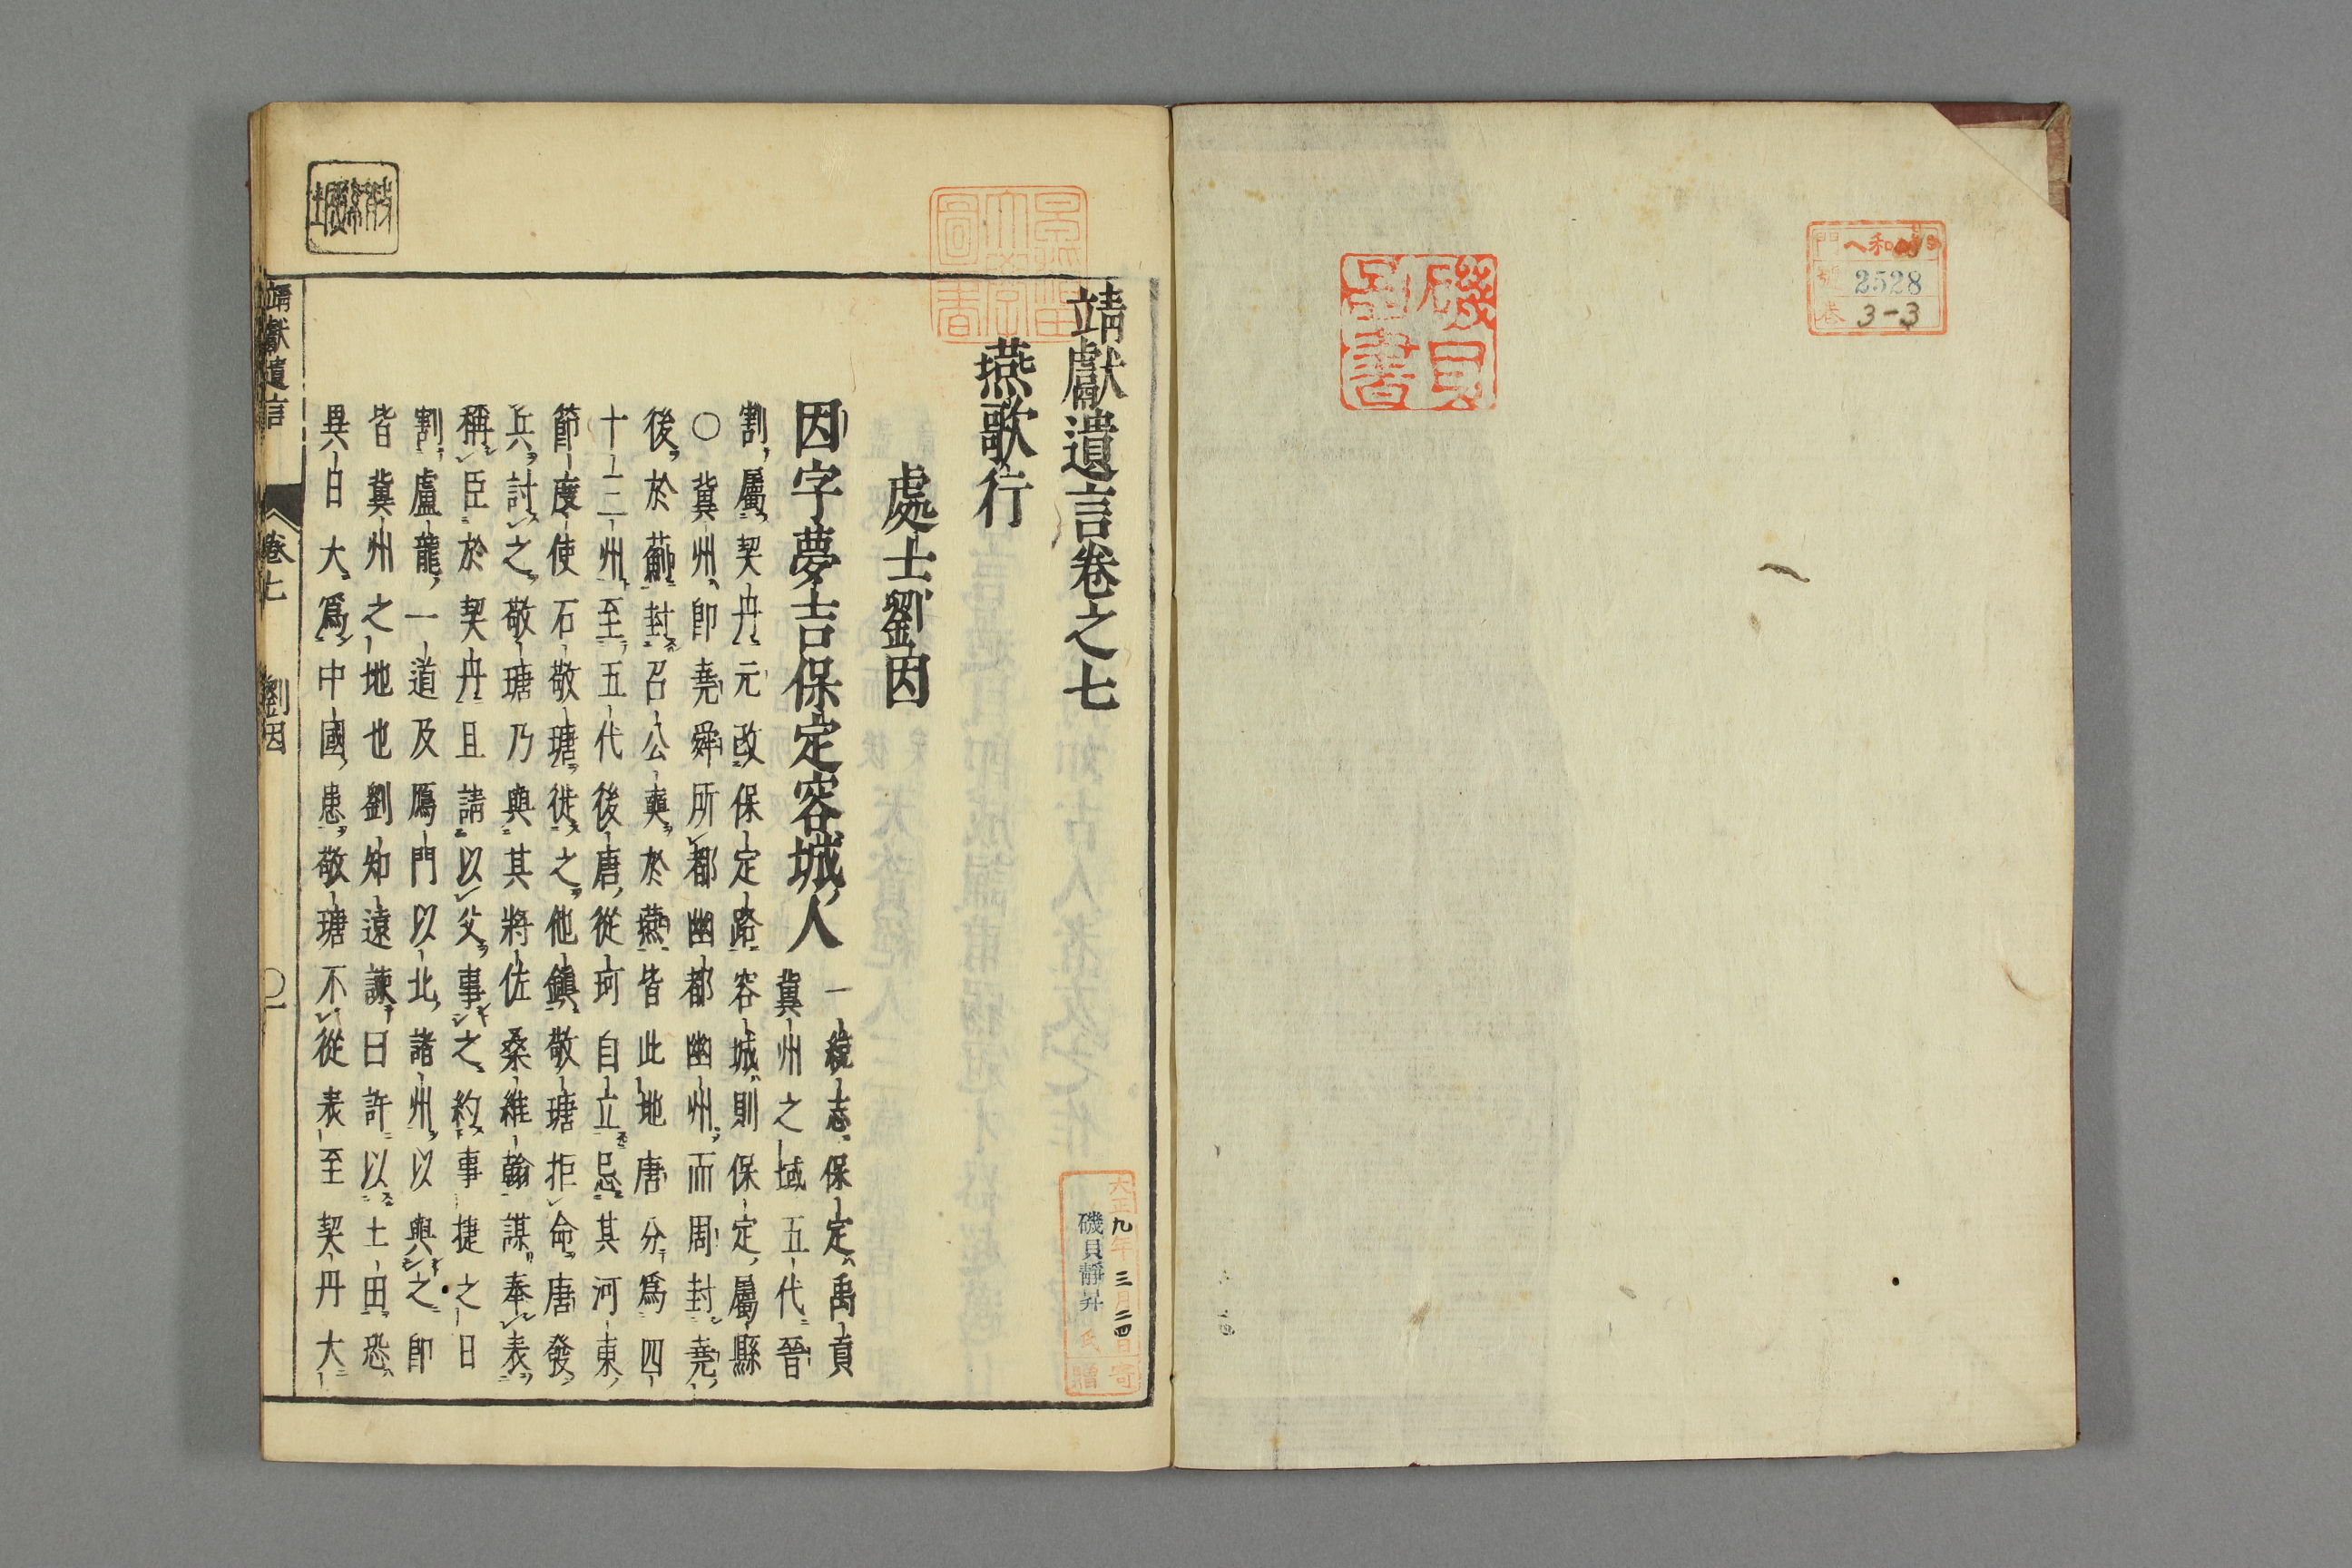 和
2528
3-3
磯貝
圖書
靖獻遺言卷之七
燕歌行
處士劉因
因字夢吉保定容城人
一統志保定禹貢
冀州之域五代晉
割屬契丹元改保定路容城則保定屬縣
○冀州即堯舜所都幽都幽州而周封堯
後於薊封召公奭於燕皆此地唐分爲四
十三州至五代後唐從珂自立忌其河東
節度使石敬瑭徙之他鎮敬瑭拒命唐發
兵討之敬瑭乃與其將佐桑維翰謀奉表
稱臣於契丹且請以父事之約事捷之日
割盧龍一道及鴈門以北諸州以與之即
皆冀州之地也劉知遠諫曰許以土田恐
異日大爲中國患敬瑭不從表至契丹大
靖獻遺言 卷七 劉因 ○一
大正九年三月二四日寄
磯貝靜昇氏贈